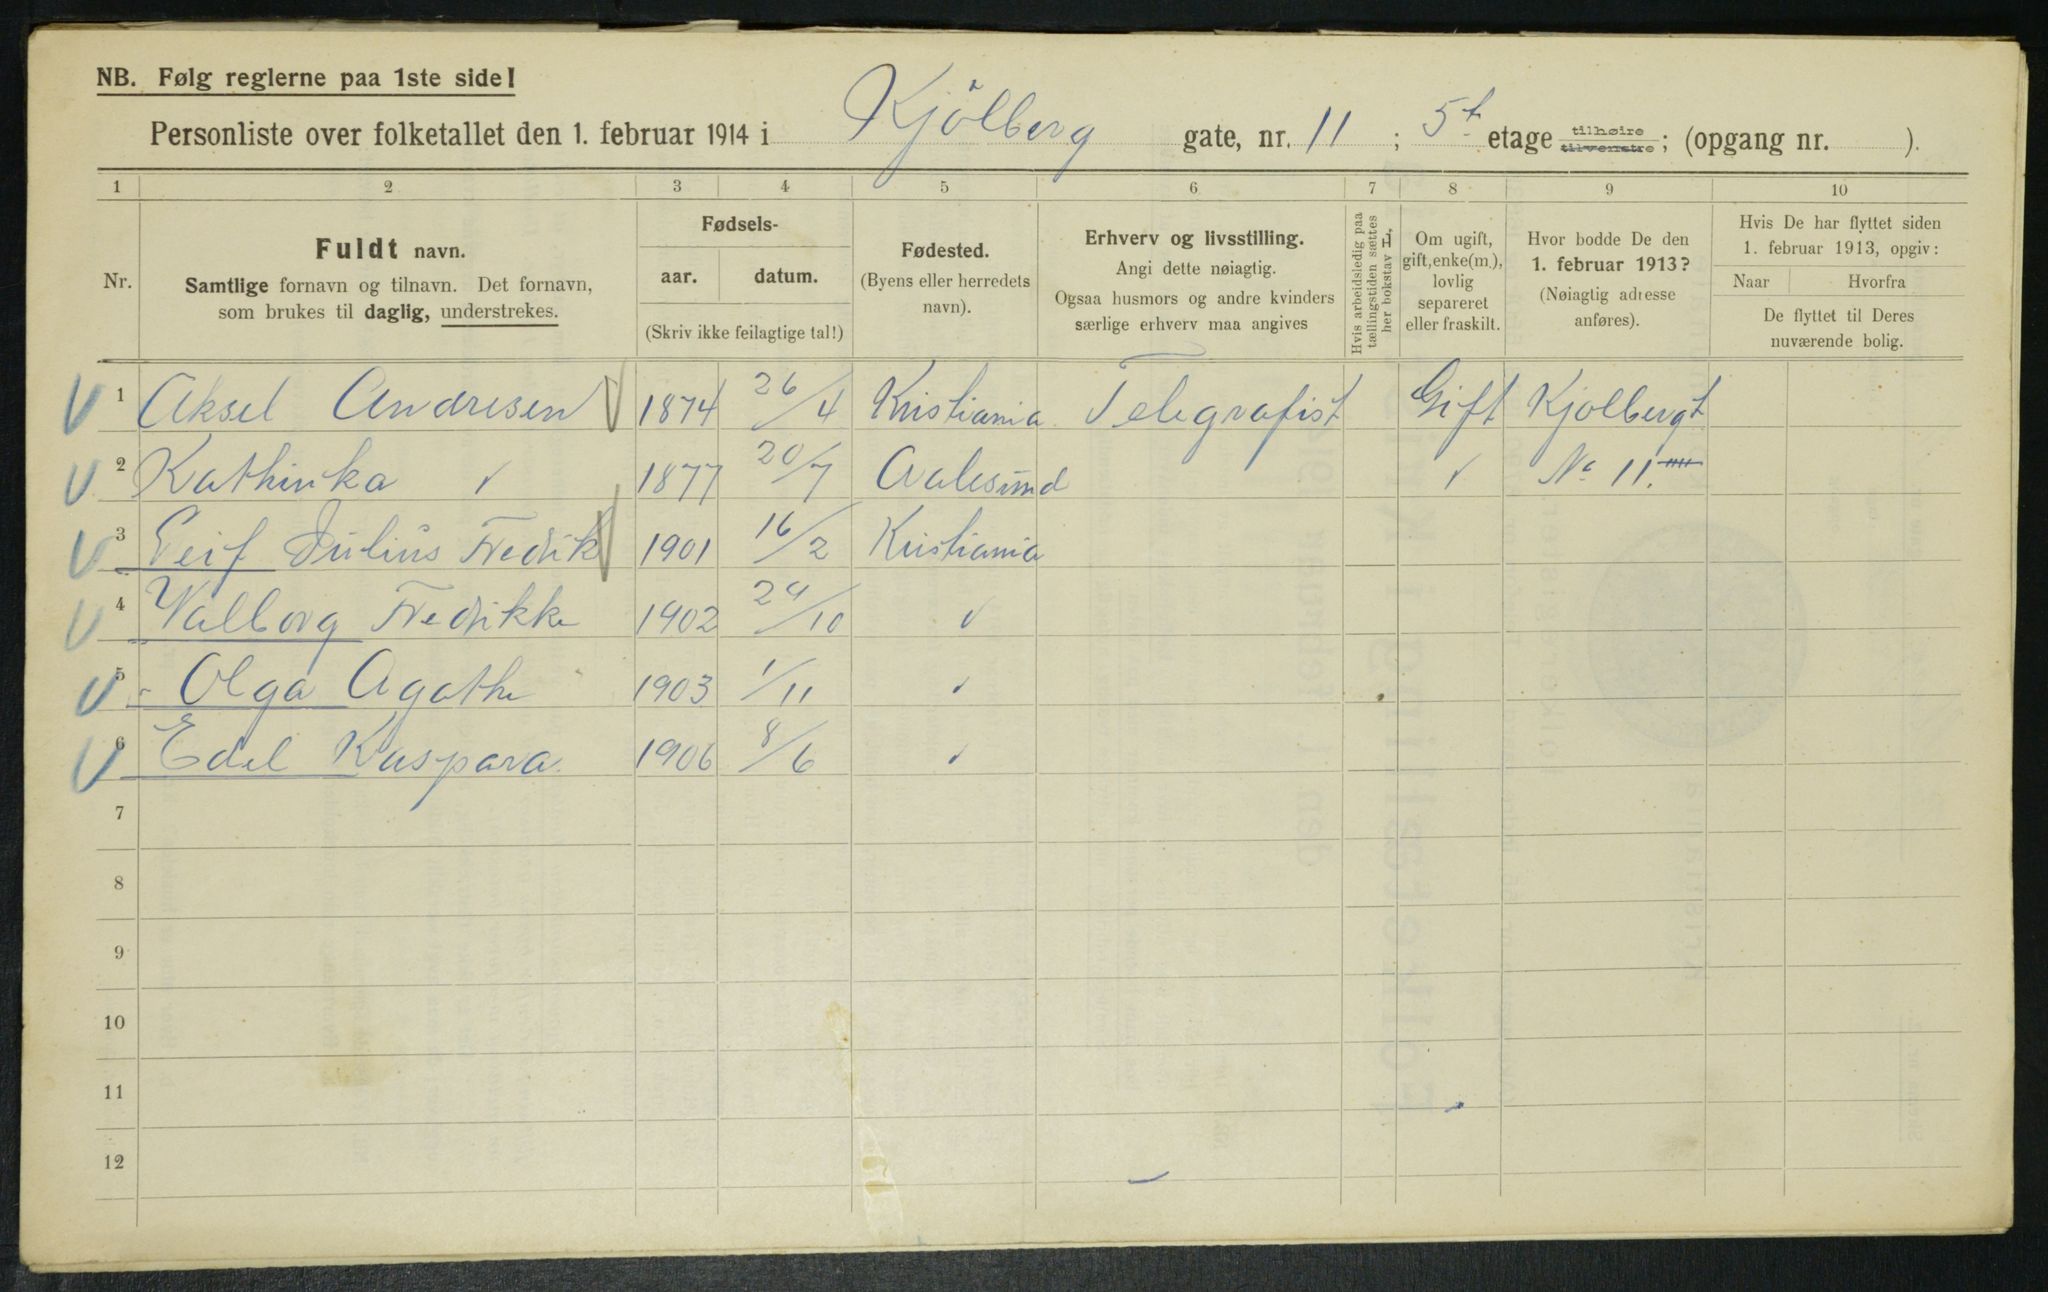 NB. Følg reglerne paa 1ste side!
Personliste over folketallet den 1. februar 1914 i Kjölberg gate, nr. 11 ; 5t etage tilhøire tilvenstre; (opgang nr. ).
1 2 3 4 5 6 7 8 9 10
Nr.
Fuldt navn.
Samtlige fornavn og tilnavn. Det fornavn,
som brukes til daglig, understrekes.
Fødsels-
aar. datum.
(Skriv ikke feilagtige tal!)
Fødested.
(Byens eller herredets
navn).
Erhverv og livsstilling.
Angi dette nøiagtig.
Ogsaa husmors og andre kvinders
særlige erhverv maa angives
Hvis arbeidsledig paa
tællingstiden sættes
her bokstav H.
Om ugift,
gift, enke(m.),
lovlig
separeret
eller fraskilt.
Hvor bodde De den
1. februar 1913?
(Nøiagtig adresse
anføres).
Hvis De har flyttet siden
1. februar 1913, opgiv:
Naar Hvorfra
De flyttet til Deres
nuværende bolig.
1 Aksel Andresen 1874 26/4 Kristiania Telegrafist Gift Kjölbergt
2 Kathinka 1877 20/7 Aalesund No 11.
3 Leif Julius Fredrik 1901 16/2 Kristiania
4 Valborg Fredrikke 1902 /10
5 Olga Agathe 1903 1/11
6 Edel Kaspara 1906 8/6
7
8
9
10
11
12